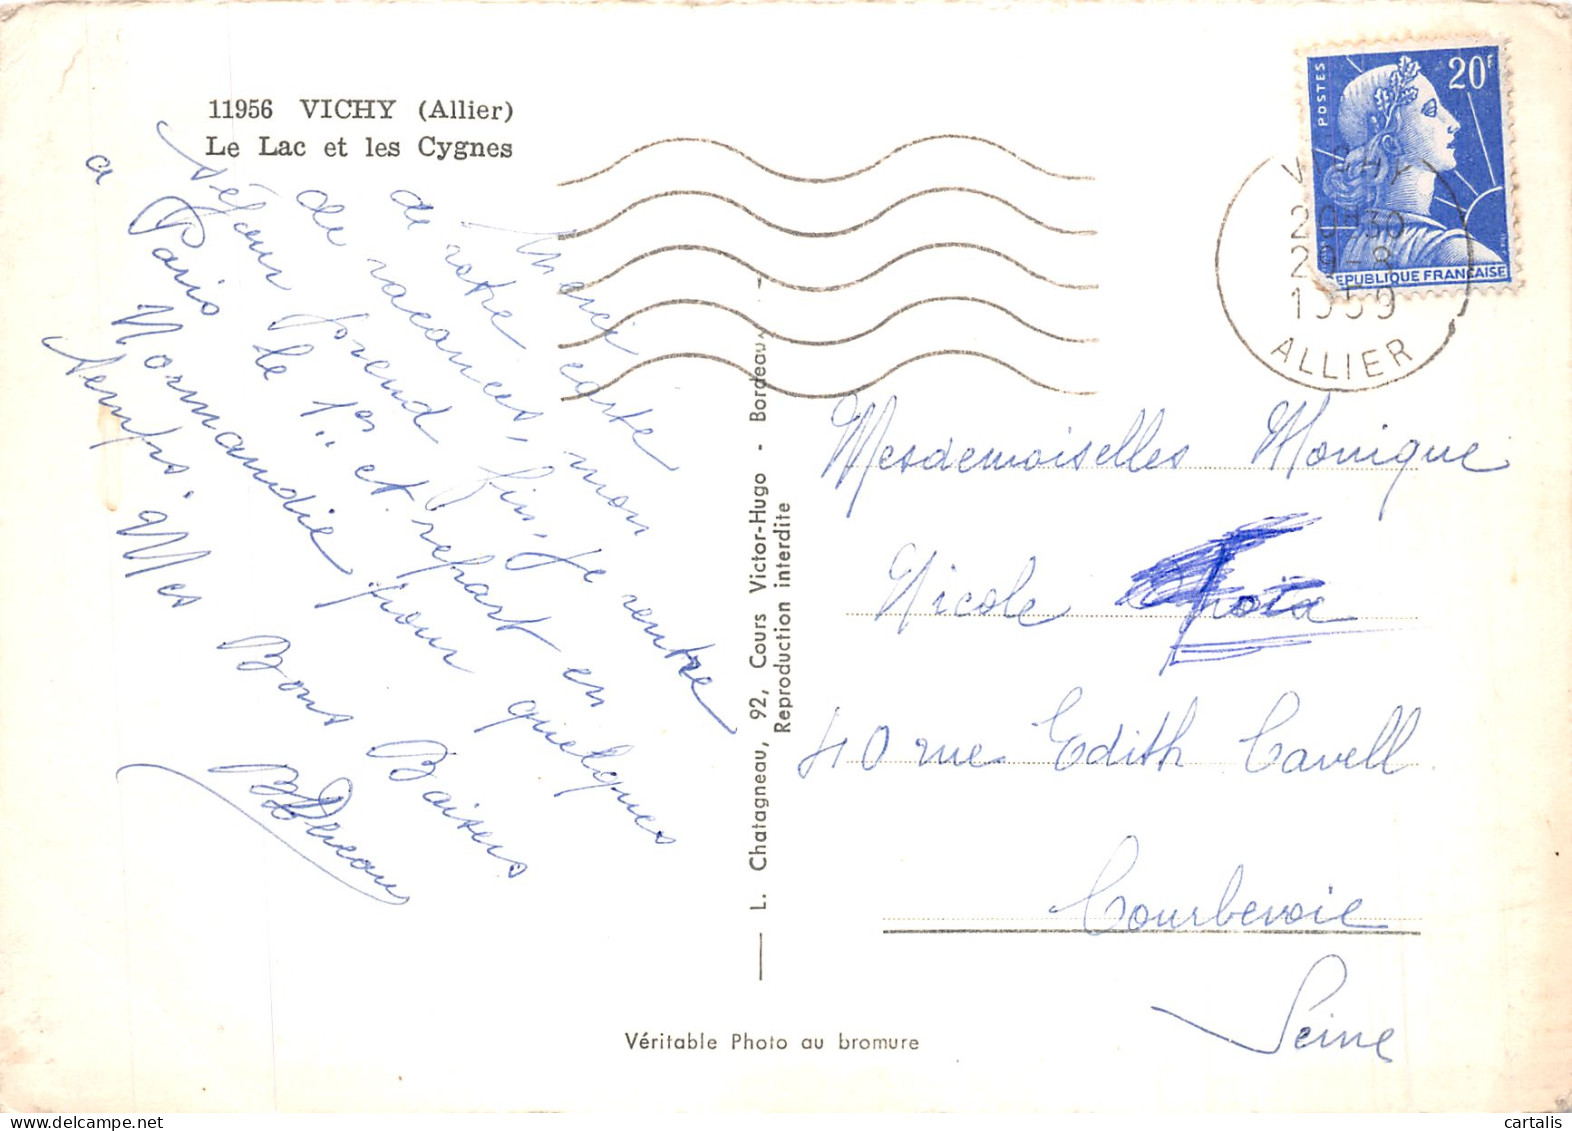 11956 VICHY (Allier)
Le Lac et les Cygnes
Merci
de votre carte
de vacances, mon
séjour prend fin, je rentre
a Paris le 1er et repart en
Normandie pour quelques
temps. Mes Bons Baisers
POSTES
20F
REPUBLIQUE FRANÇAISE
VICHY
20H30
29-8
1959
ALLIER
L. Chatagneau, 92, Cours Victor-Hugo - Bordeaux
Reproduction interdite
Mesdemoiselles Monique
Nicole
40 rue Edith Cavell
Courbevoie
Seine
Véritable Photo au bromure
cartalis
www.delcampe.net